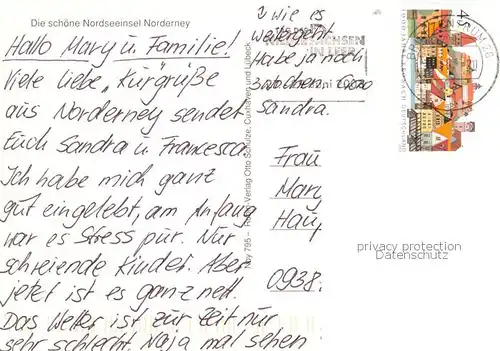 Die schöne Nordseeinsel Norderney
Hallo Mary u. Familie!
Viele liebe „Kurgrüße
aus Norderney sendet
Euch Sandra u. Francesca.
Ich habe mich ganz
gut eingelebt, am Anfang
war es Stress pur. Nur
schreiende Kinder. Aber
jetzt ist es ganz nett.
Das Wetter ist zur Zeit nur
sehr schlecht. Naja mal sehen
wie es
weitergeht.
Habe ja noch
3 Wochen.
Sandra.
Noy 795 – Verlag Otto Schulze, Cuxhaven und Lübeck
Frau
Mary
Hau
0938
privacy protection
Datenschutz
DEUTSCHLAND